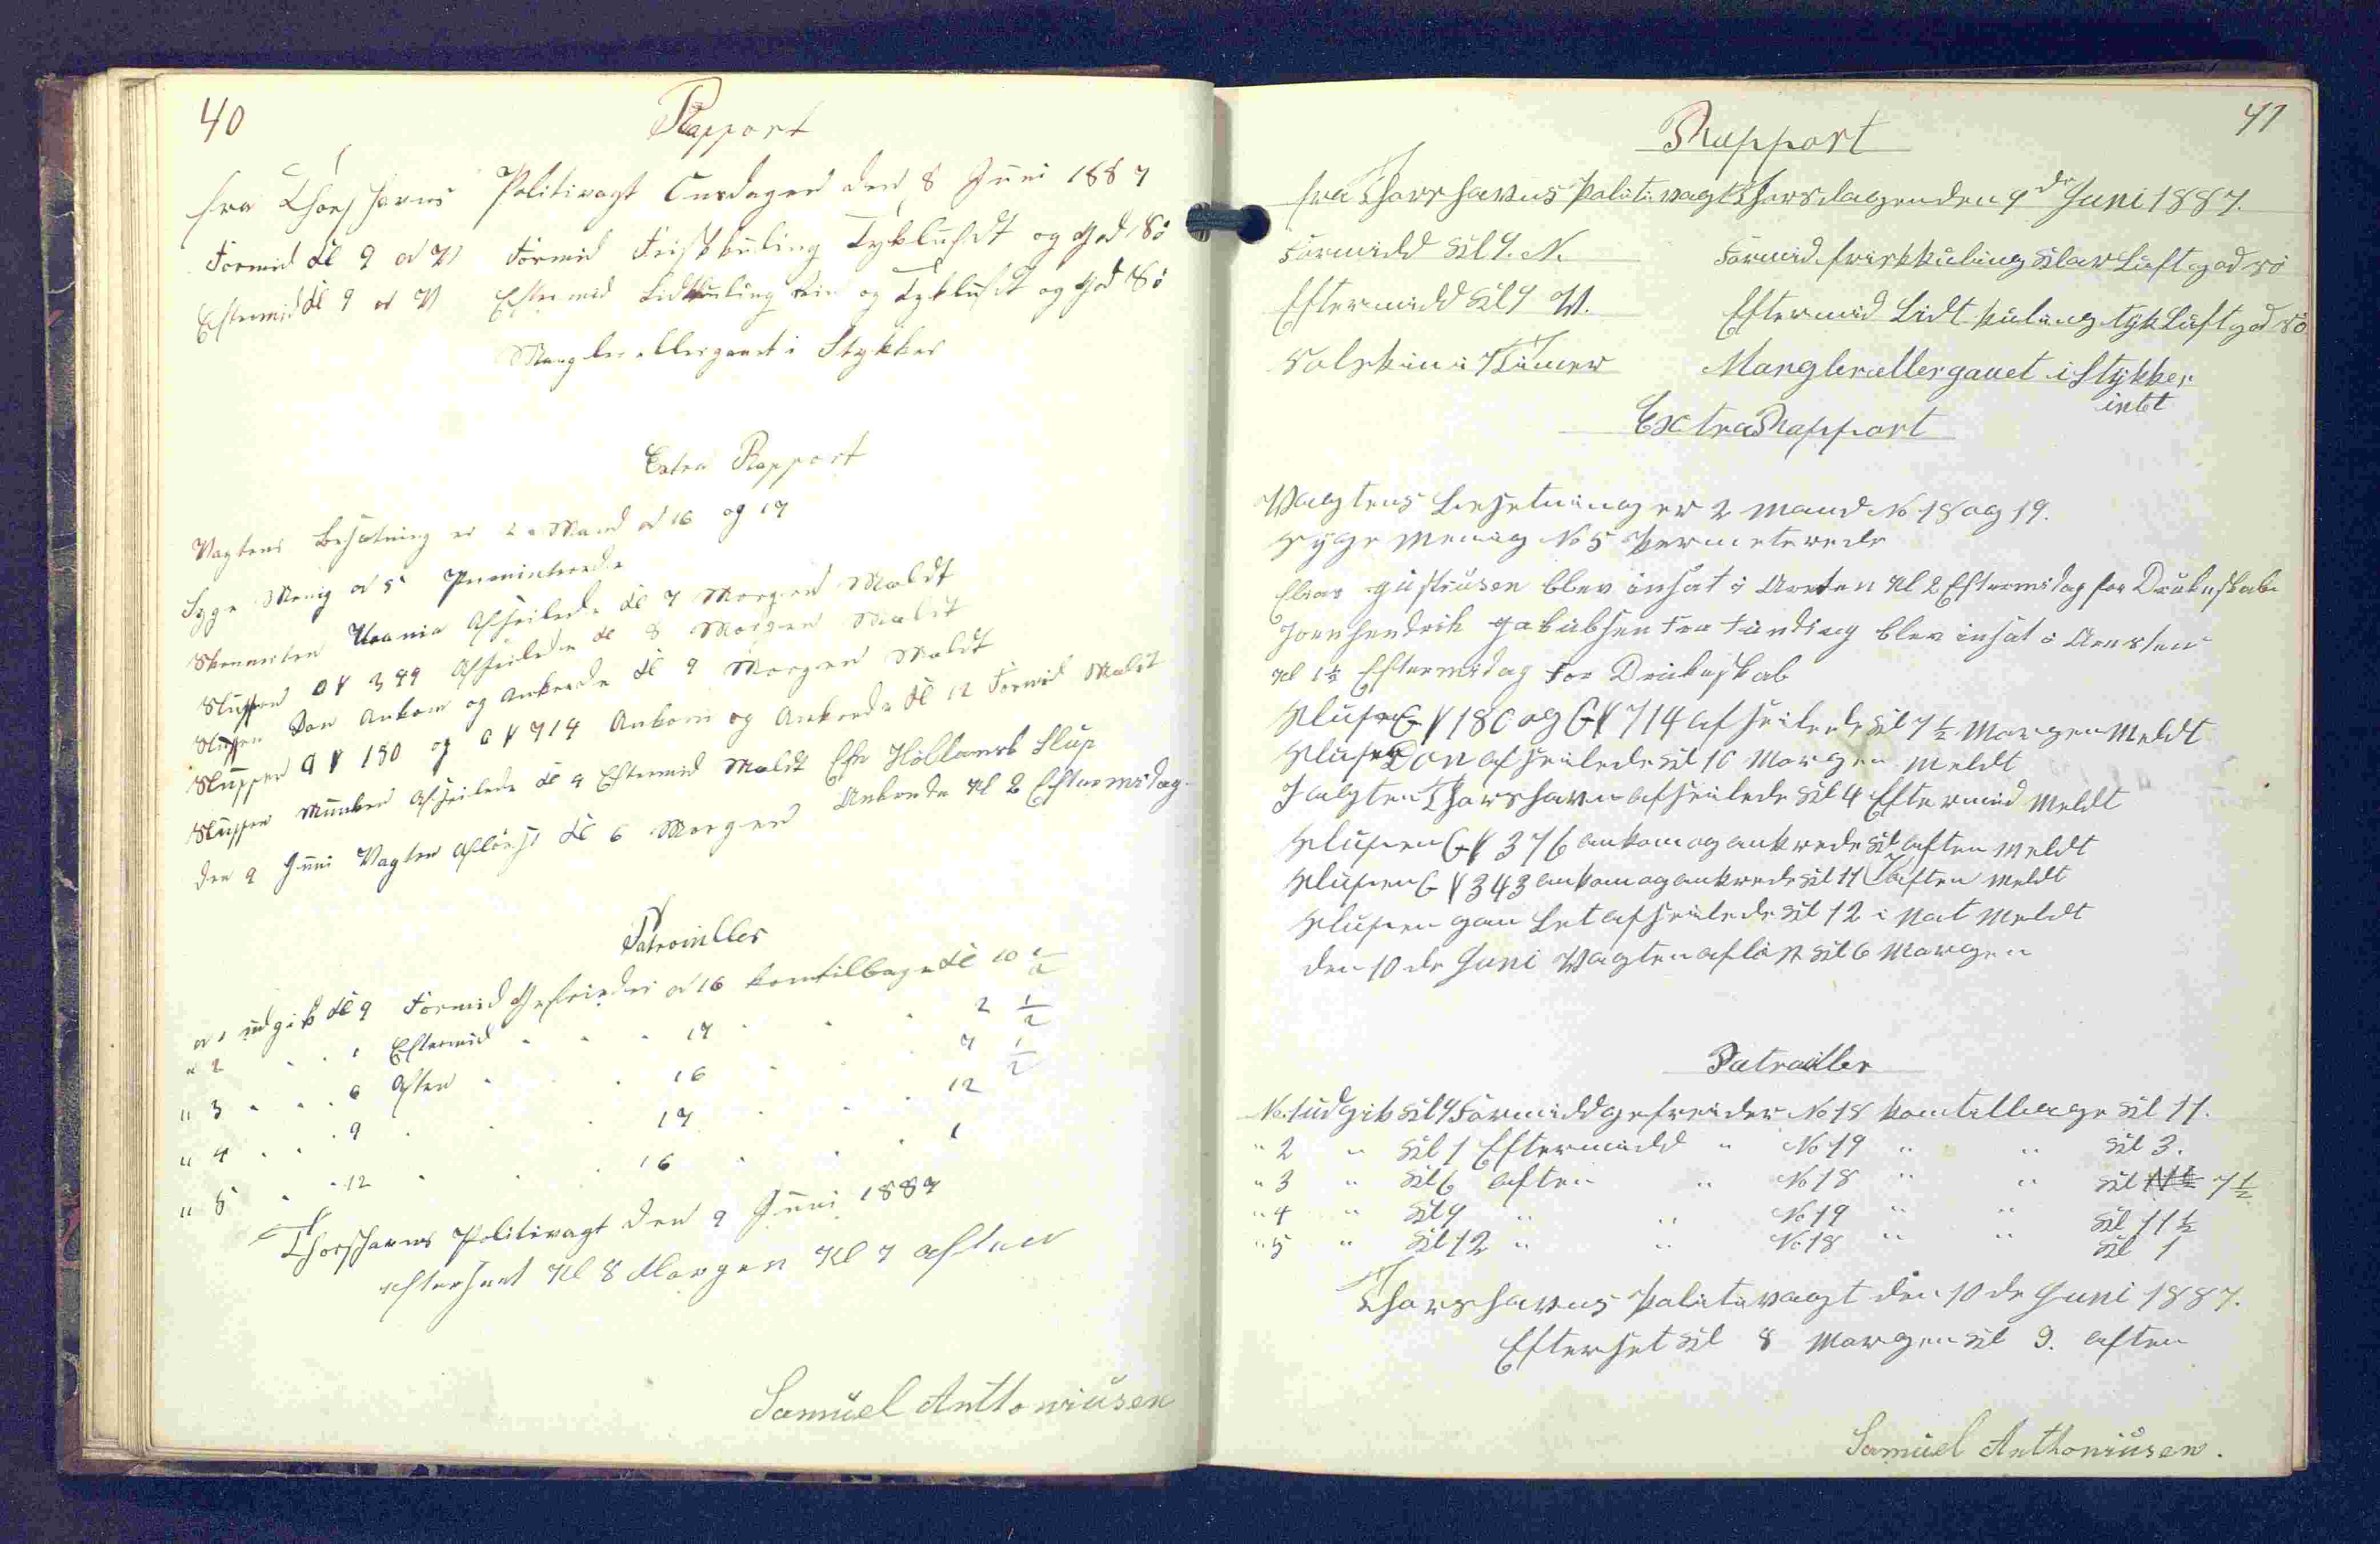 40
Rapport
fra Thorshavns Politivagt Onsdagen den 8 Juni 1887
Formid Kl 9 Formid Friskkuling Tykluft og God Sö
Eftermid Kl 9 Eftermid Lidtkuling og Tykluft og God Sö
Mangler eller gaaet i Stykker
Extra Rapport
Vagtens Besætning er 2 Mand No 16 og 17
Syge Menig No 5 Perminterede
Skonnerten Urania Afseilede Kl 7 Morgen Meldt
Sluppen 399 Afseilede Kl 8 Morgen Meldt
Sluppen Don Ankom og Ankrede Kl 9 Morgen Meldt
Sluppen 180 og 714 Ankom og Ankrede Kl 12 Formid Meldt
Sluppen Munken Afseilede Kl 4 Eftermid Meldt Slup
Ankrede Kl 2 Eftermidag
den 9 Juni Vagten Aflöst Kl 6 Morgen
Patrouiller
No 1 udgik Kl 9 Formid Gefreider No 16 komtilbage Kl 10 1/2
" 2 " " 1 Eftermid " " 17 " " 2 1/2
" 3 " " 6 Aften " " 16 " " 7 1/2
" 4 " " 9 " " 17 " " 12
" 5 " " 12 " " 16 " " 1
Thorshavns Politivagt den 9 Juni 1887
efterseet Kl 8 Morgen Kl 7 aften
Samuel Anthoniusen
41
Rapport
fra Thorshavns Politivagt Thorsdagen den 9de Juni 1887.
Formidd Kl 9. N. Formid. friskkuling Klar Luft god sö
Eftermidd Kl 9 V. Eftermid Lidt kuling tyk Luft god sö
Solskin i 7 Timer Mangler eller gaaet i Stykker
intet
Extra Rapport
Vagtens Besetning er 2 Mand No 18 og 19.
Syge Menig No 5 Permeterede
Elias Justinusen blev insat i Aresten Kl 2 Eftermidag for Drukenskab
Joenhendrik Jakobsen fra blev insat i Arresten
Kl 1 1/2 Eftermidag for Drukenskab
Slupen GV 180 og GV 714 afseilede Kl 7 1/2 Morgen Meldt
Slupen Don afseilede Kl 10 Morgen Meldt
Jagten Thorshavn afseilede Kl 4 Eftermid Meldt
Slupen GV 376 ankom og ankrede Kl aften Meldt
Slupen GV 343 ankom og ankrede Kl 11 aften Meldt
Slupen afseilede Kl 12 i Nat Meldt
den 10 de Juni Vagten aflöst Kl 6 Morgen
Patrouiller
No 1 udgik Kl 9 Formidd gefreider No 18 kom tilbage Kl 11.
" 2 " Kl 1 Eftermidd " No 19 " " Kl 3.
" 3 " Kl 6 aften " No 18 " " Kl 7 1/2
" 4 " Kl 9 " " No 19 " " Kl 11 1/2
" 5 " Kl 12 " " No 18 " " Kl 1
Thorshavns Politivagt den 10 de Juni 1887.
Efterset Kl 8 Morgen Kl 9. aften
Samuel Anthoniusen.